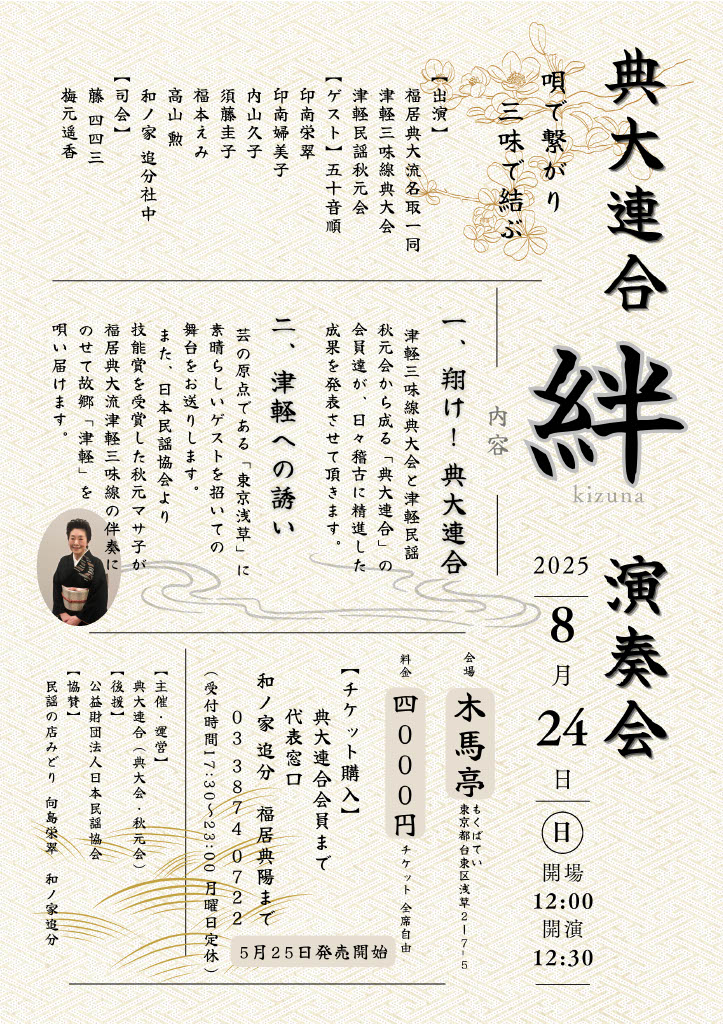 典大連合
絆
kizuna
演奏会
2025
8
月
24
日
日
開場
12:00
開演
12:30
唄で繋がり
三味で結ぶ
【出演】
福居典大流名取一同
津軽三味線典大会
津軽民謡秋元会
【ゲスト】五十音順
印南栄翠
印南婦美子
内山久子
須藤圭子
福本えみ
高山 勲
和ノ家 追分社中
【司会】
藤 四四三
梅元遥香
内容
一、翔け！典大連合
津軽三味線典大会と津軽民謡
秋元会から成る「典大連合」の
会員達が、日々稽古に精進した
成果を発表させて頂きます。
二、津軽への誘い
芸の原点である「東京浅草」に
素晴らしいゲストを招いての
舞台をお送りします。
また、日本民謡協会より
技能賞を受賞した秋元マサ子が
福居典大流津軽三味線の伴奏に
のせて故郷「津軽」を
唄い届けます。
会場
木馬亭
もくばてい
東京都台東区浅草2-7-5
料金
四000円
チケット 全席自由
【チケット購入】
典大連合会員まで
代表窓口
和ノ家 追分 福居典陽まで
03 3874 0722
(受付時間17:30〜23:00 月曜日定休)
5月25日発売開始
【主催・運営】
典大連合(典大会・秋元会)
【後援】
公益財団法人日本民謡協会
【協賛】
民謡の店みどり 向島栄翠 和ノ家追分